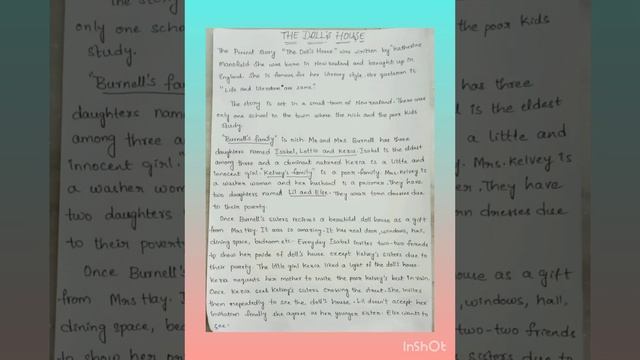 THE DOLL'S HOUSE
The Parent story "The Doll's House" was written by "Katherine
Mansfield. She was borne in New zealand and brought up in
England. She is famous for her literary style. Her quotation is
"Life and literature" are same."
The story is set in a small town of New zealand. There was
only one school to the town where the rich and the poor kids
study.
"Burnell's family" is rich. Mr and Mrs Burnell has three
daughters named Isabel, Lottie and Kezia. Isabel is the eldest
among three and a dominant natured Kezia is a little and
innocent girl. "Kelvey's family" is a poor family. Mrs. Kelvey is
a washer woman and her husband is a prisoner. They have
two daughters named Lil and Else. They wear torn dresses due
to their poverty.
Once Burnell's sisters recieves a beautiful doll house as a gift
from Mrs Hay. It was so amazing. It has real door, windows, hall,
dining space, bedroom etc. Everyday Isabel invites two-two friends
to show her pride of doll's house except Kelvey's sisters due to
their poverty. The little girl Kezia liked a light of the doll's house
Kezia requests her mother to invite the poor Kelvey's but in vain.
Once Kezia seek Kelvey's sisters crossing the street. She invites
them repeatedly to see the doll's house. Lil doesn't accept her
invitation finally she agree as her younger sister Else wants to
see.
The story
only one school
study.
"Burnell's fam
daughters name
among three a
innocent girl."
a washer wome
two daughters
to their pover
Once Burnell's
from Mrs Hay. I
dining space, bed
to show her pr
the poor kids
has three
l is the eldest
a little and
Mrs. Kelvey is
They have
rn dresses due
ouse as a gift
windows, hall,
two-two friends
InShOt